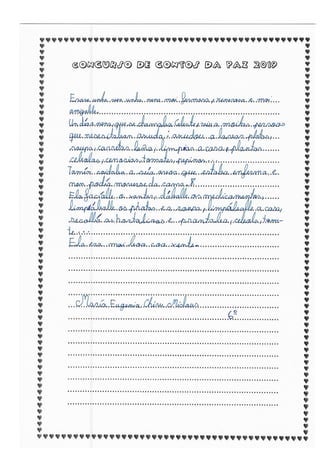 CONCURSO DE CONTOS DA PAZ 2019
Érase unha vez unha nena moi fermosa, e xenerosa e moi
amable.
Un día a nena, que se chamaba Celeste, viu a moitas persoas
que necesitaban axuda i axudou a lavar platos,
roupa, carretar leña, limpar a casa e plantar
cebolas, cenorias, tomates, pepinos...
Tamén coidaba a súa avoa que estaba enferma e
non podía moverse da cama.
Ela facíalle o xantar, dáballe os medicamentos,
limpáballe os platos e a roupa, limpáballe a casa,
recollía as hortalizas e prantaba, cebola, toma-
te...
Ela era moi boa coa xente.
María Eugenia
6º